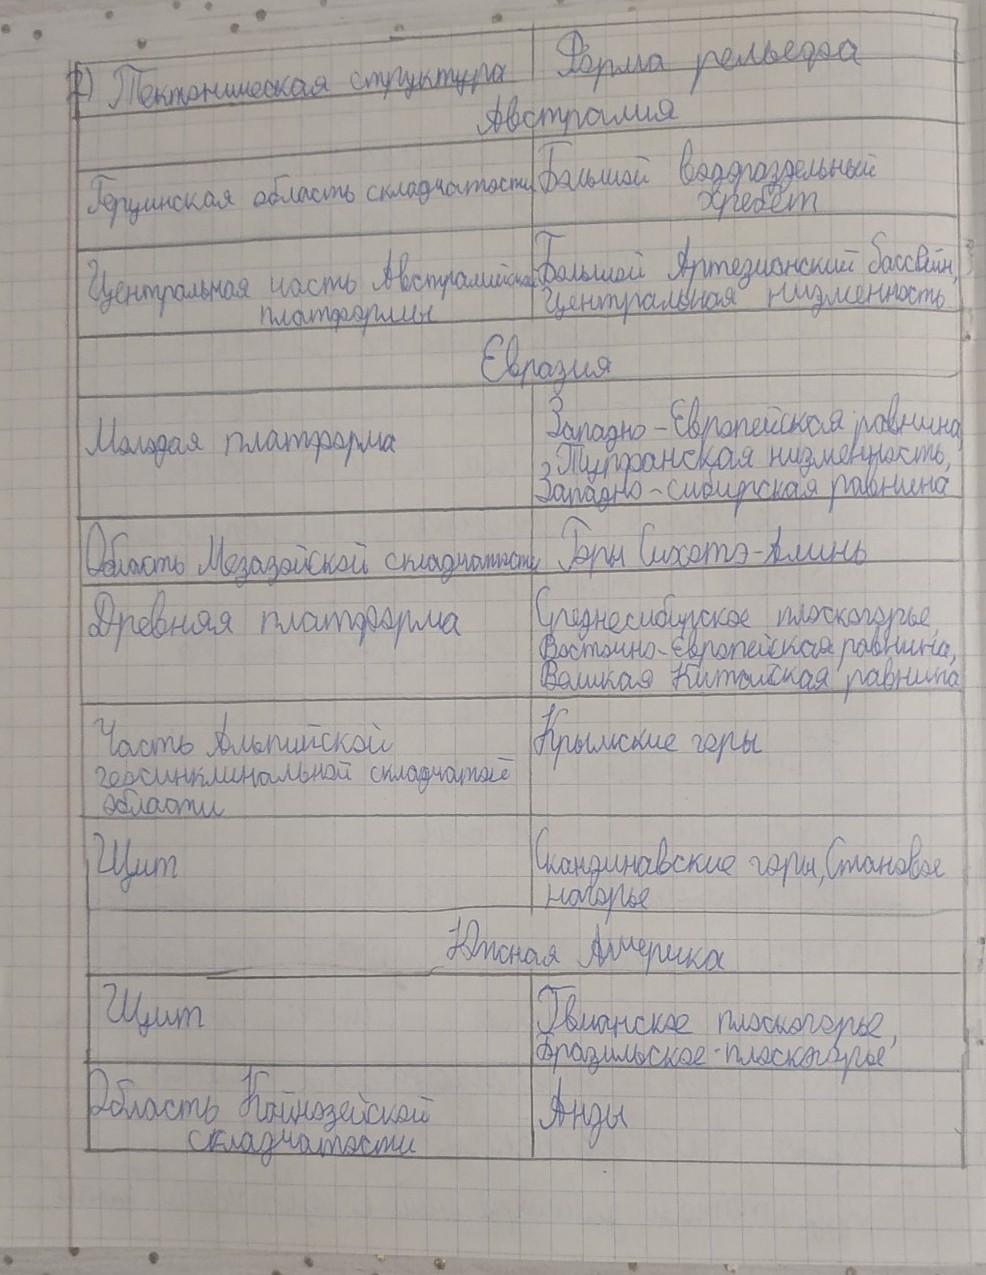 2) Тектоническая структура
Форма рельефа
Австралия
Герцинская область складчатости
Большой Водораздельный
хребет
Центральная часть Австралийской
платформы
Большой Артезианский бассейн,
Центральная низменность
Евразия
Молодая платформа
Западно-Европейская равнина
, Туранская низменность,
Западно-сибирская равнина
Область Мезазойской складчатости
Горы Сихотэ-Алинь
Древняя платформа
Среднесибирское плоскогорье
Восточно-Европейская равнина,
Великая Китайская равнина
Часть Альпийской
геосинклинальной складчатой
области
Крымские горы
Щит
Скандинавские горы, Становое
нагорье
Южная Америка
Щит
Гвианское плоскогорье,
Бразильское-плоскогорье
Область Кайнозейской
складчатости
Анды